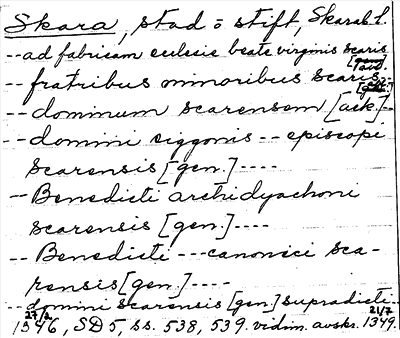 Skara, stad o stift, Skarab. l.
-- ad fabricam ecclesie beate virginis scaris [avs.]
-- fratribus minoribus scaris
-- dominum scarensem [ack.] --
-- domini siggonis -- episcopi
scarensis [gen.] ----
-- Benedicti archidyachoni
scarensis [gen.] ----
-- Benedicti --- canonici sca-
rensis [gen.] ----
-- domini scarensis [gen.] supradicti --
27/2 1346, SD 5, ss. 538, 539. vidim. avskr. 21/7 1349.